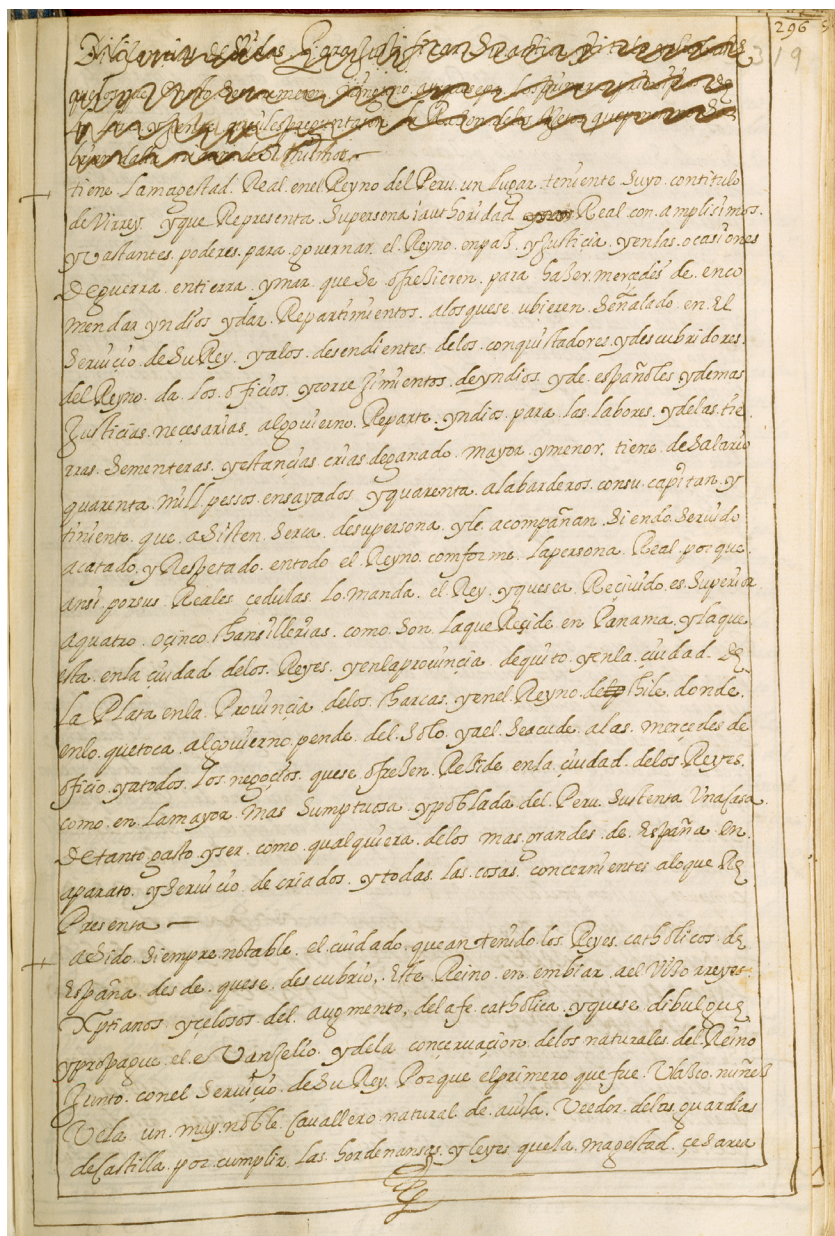 296
319
tiene Lamagestad. Real. enel Reyno del Peru. un Lugar. teniente Suyo. contitulo
de Virrey. yque Representa Supersona i authoridad Real con. amplisimos.
y vastantes. poderes. para governar. el Reyno. enpas. y Justicia. yenlas. ocasiones
de guerra. entierra. ymar. que Se ofresieren. para haser. merçedes de enco
mendar yndios ydar. Repartimientos. alosquese ubieren Señalado. en. El
Seruiçio. de Su Rey. yalos. desendientes. delos. conquistadores. ydescubridores.
del Reyno. da. Los. ofiçios. ycorre Jimientos. deyndios. yde. españoles ydemas
Justiçias. necesarias. algouierno. Reparte. yndios. para. las. labores. ydelas. tie
rras. Sementeras. yestançias. crias. deganado. mayor. ymenor. tiene. deSalario
quarenta. mill. pessos. ensayados. yquarenta. alabarderos. consu. capitan. y
tiniente. que. aSisten. Serca. desupersona. yle. acompañan. Siendo. Seruido
acatado. y Respetado. entodo. el. Reyno. comforme. Lapersona. Real. porque.
ansi. porsus. Reales. çedulas. Lo. manda. el. Rey. yquesea. Reçiuido. es. Superior
aquatro. oçinco. chansillerias. como. Son. Laque Reçide. en. Panama. ylaque
esta. enla. çiudad. delos. Reyes. yenlaprouinçia. dequito. yenla. çiudad. de
La Plata. enla. Prouinçia. delos. charcas. yenel Reyno. de chile. donde.
enlo. quetoca. algouierno. pende. del. Solo. yael. Seacude. alas. merçedes de
ofiçio. yatodos. Los. negoçios. quese. ofresen. Reside. enla. çiudad. delos. Reyes.
como. en. Lamayor. mas. Sumptuosa. ypoblada. del. Peru. Sustenta Una casa.
De tanto. gasto. yser. como. qualquiera. delos. mas. grandes. de. España. en.
aparato. y Seruiçio. de criados. y todas. Las. cosas. concernientes aloque Re
Presenta
aSido. Siempre notable. el. cuidado. quean tenido. los. Reyes. catholicos. de
España. des de. quese. descubrio. Este. Reino. en. embiar. ael Viso rreyes.
Xptianos. yçelosos. del. augmento. delafe. catholica. yquese dibulgue
ypropague. el. evangelio. ydela. conçeruaçion. delos. naturales. del. Reino
Junto. conel Seruiçio. de Su Rey. Porque. elprimero. que fue. Vlasco. nuñes
Vela. un. muy. noble. Cavallero. natural. de. auila. Veedor. delas. guardas
de castilla. por. cumplir. Las. hordenansas. y leyes quela. magestad. çesarea